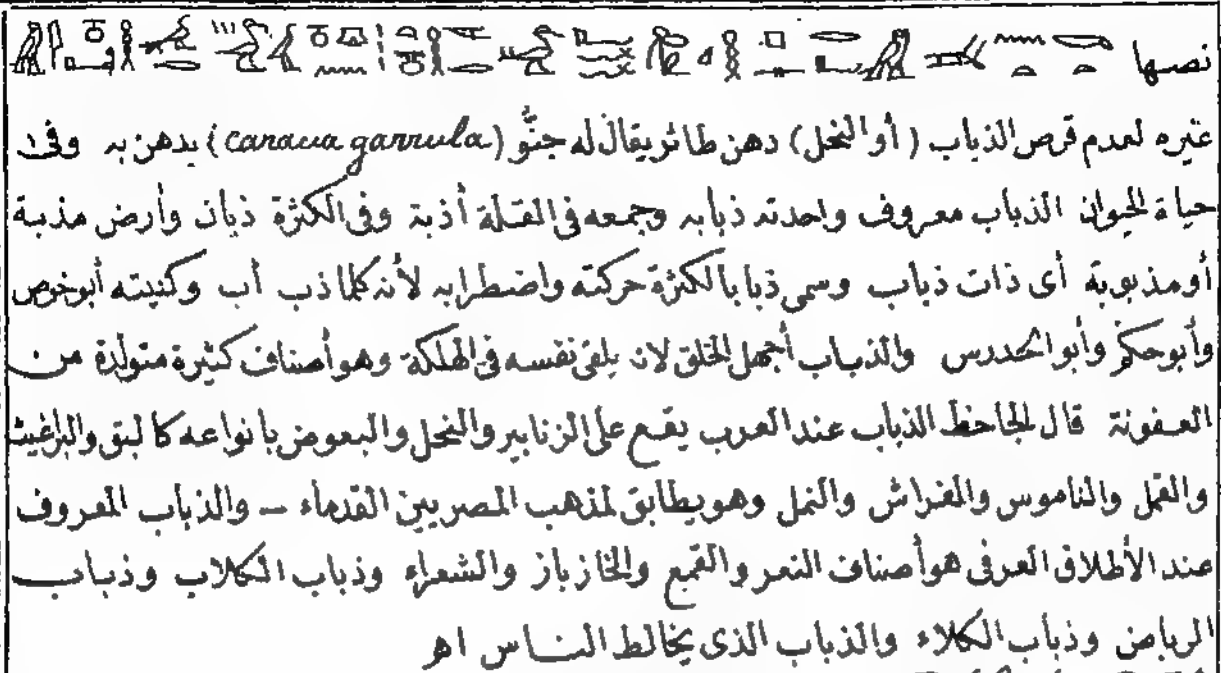 نصها
غيره لعدم قرص الذباب (أو النحل) دهن طائر يقال له جنّو (caracca garrula) يدهن به وفى
حياة الحيوان الذباب معروف واحدته ذبابه وجمعه فى القلة أذبة وفى الكثرة ذبان وأرض مذبة
أو مذبوبة أى ذات ذباب وسمى ذبابا لكثرة حركته واضطرابه لأنه كلما ذب آب وكنيته أبو خوص
وأبو حكم وأبو الحدرس والذباب أجهل الخلق لانه يلقى نفسه فى الهلكة وهو أصناف كثيرة متولدة من
العفونة قال الجاحظ الذباب عند العرب يقع على الزنابير والنحل والبعوض بانواعه كالبق والبراغيث
والقمل والناموس والفراش والنمل وهو يطابق لمذهب المصريين القدماء – والذباب المعروف
عند الأطلاق العرفى هو أصناف النعر والقمع والخازباز والشعراء وذباب الكلاب وذباب
الرياض وذباب الكلاء والذباب الذى يخالط الناس اهر